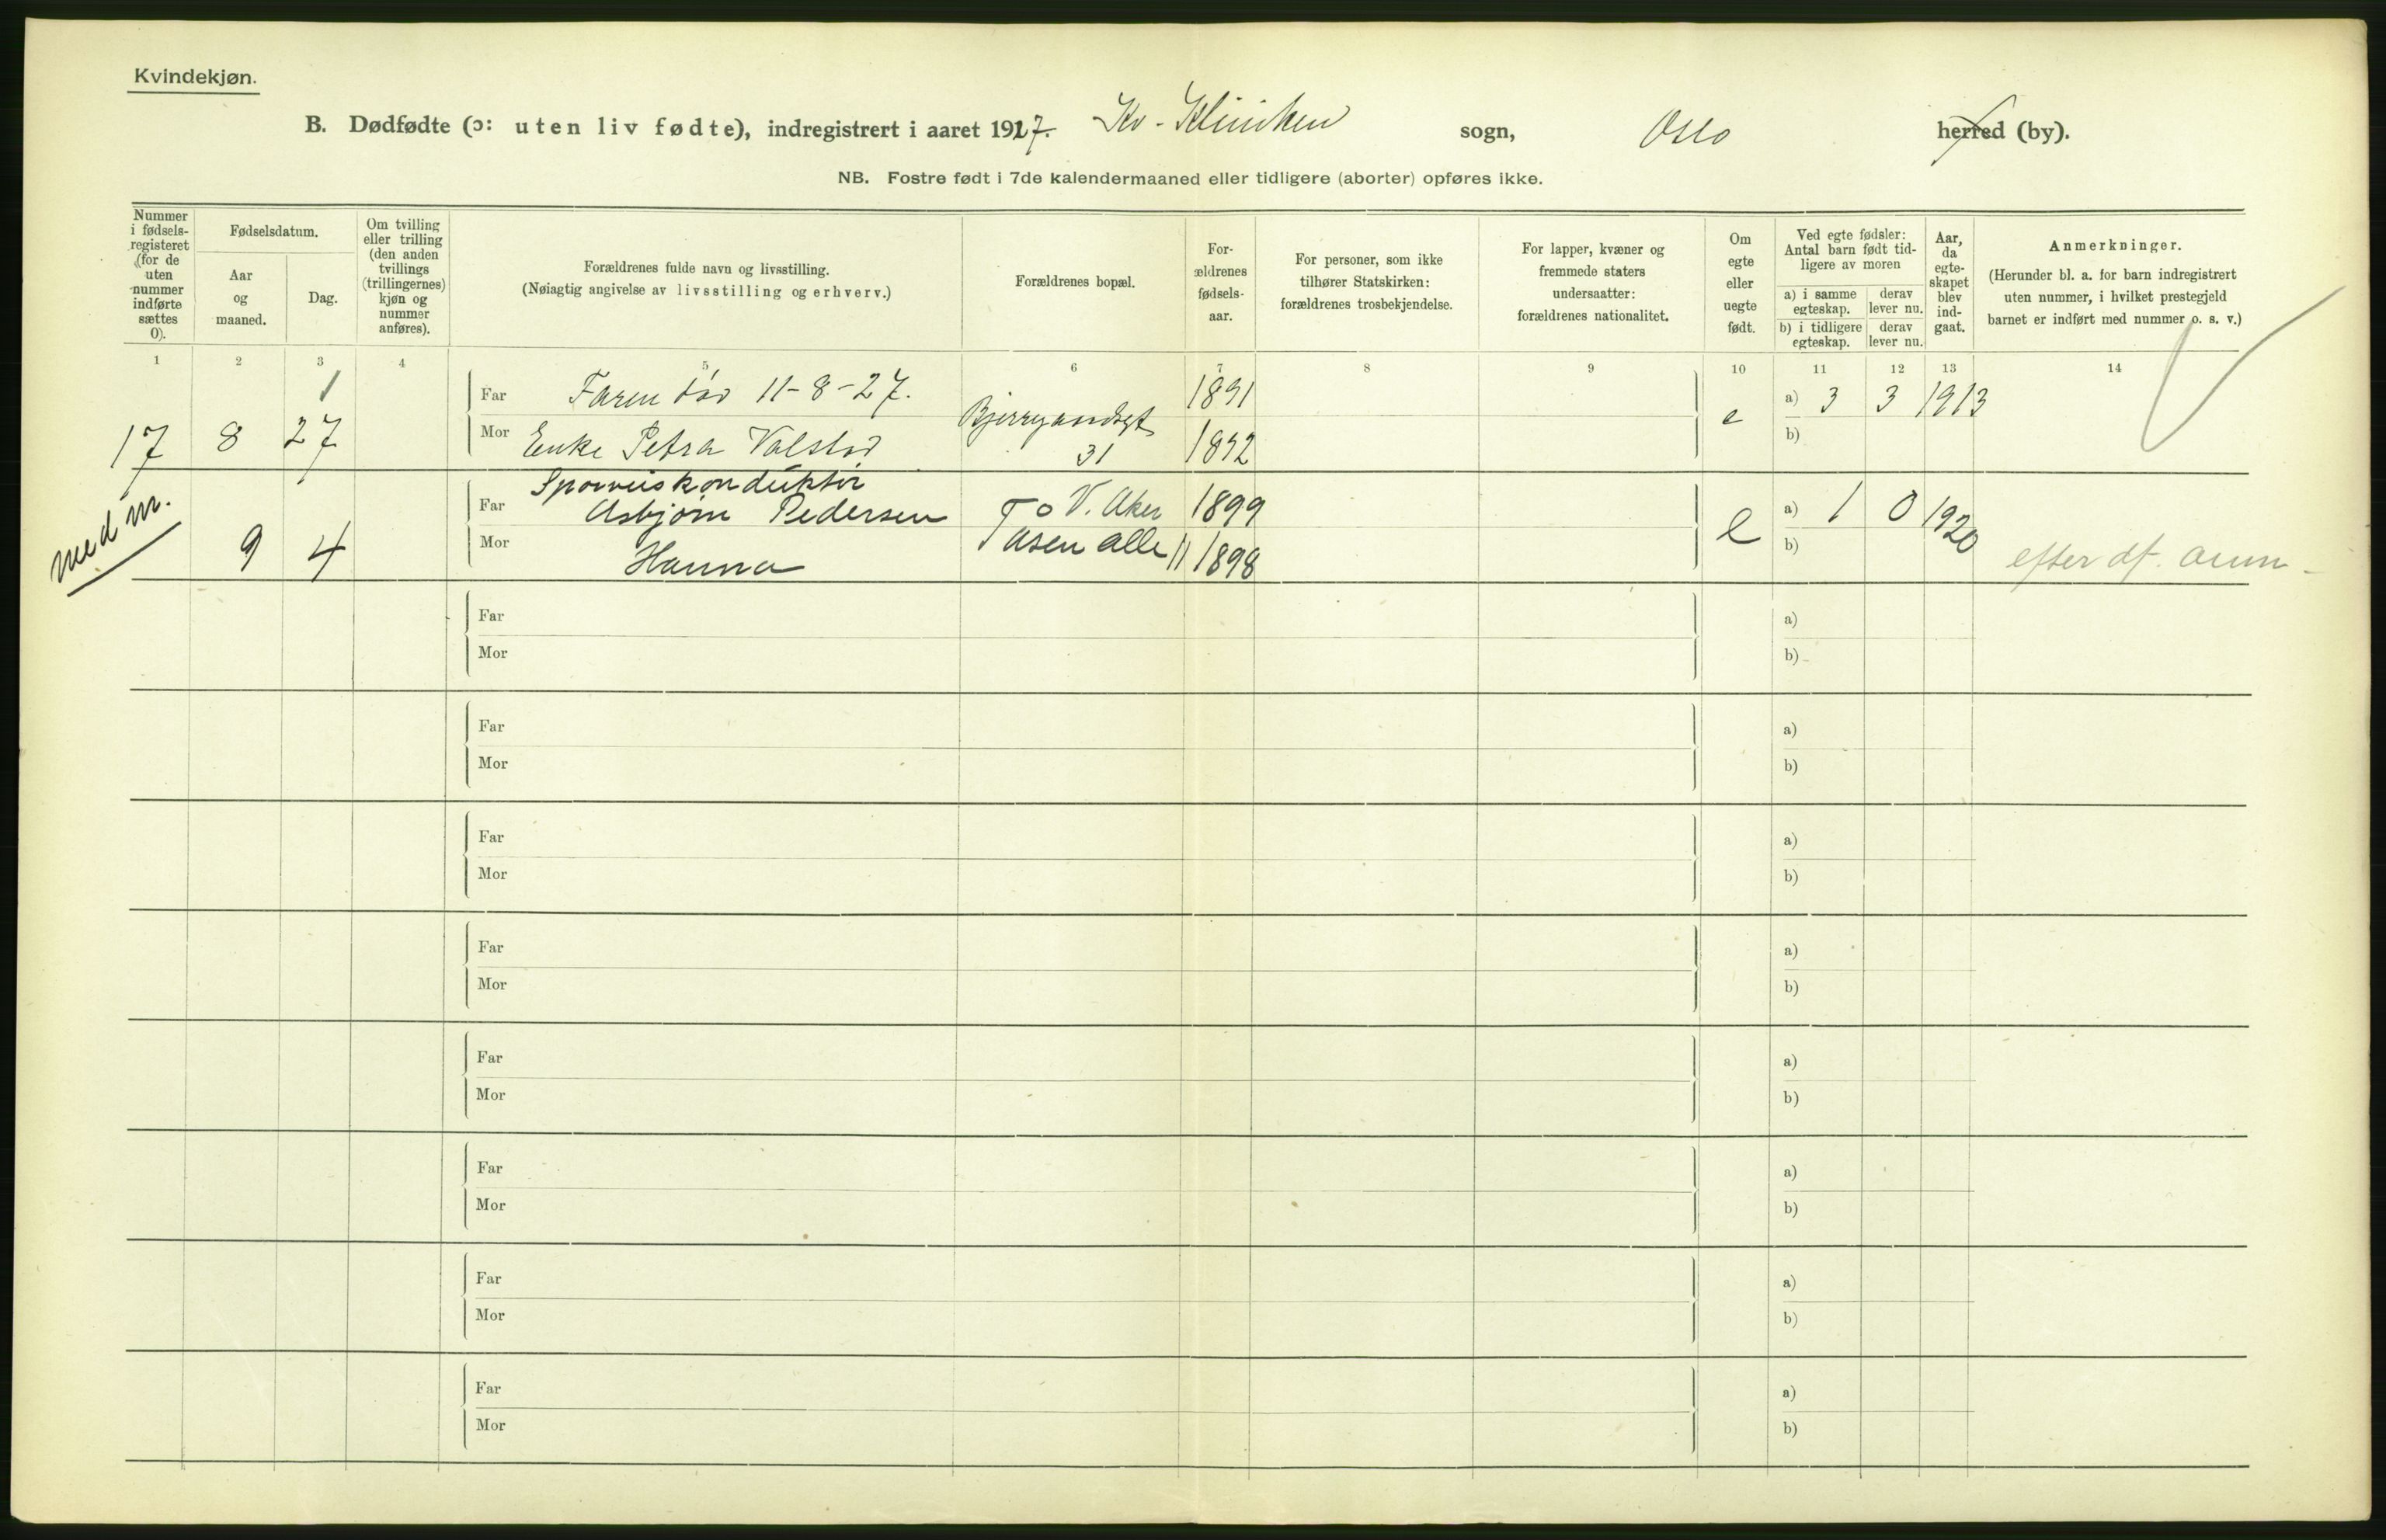 Kvindekjøn.
B. Dødfødte (ɔ: uten liv fødte), indregistrert i aaret 1927. Kv-Kliniken sogn, Oslo herred (by).
NB. Fostre født i 7de kalendermaaned eller tidligere (aborter) opføres ikke.
Nummer i fødsels-registeret (for de uten nummer indførte sættes 0).
Fødselsdatum.
Aar og maaned.
Dag.
Om tvilling eller trilling (den anden tvillings (trillingernes) kjøn og nummer anføres).
Forældrenes fulde navn og livsstilling.
(Nøiagtig angivelse av livsstilling og erhverv.)
Forældrenes bopæl.
For-ældrenes fødsels-aar.
For personer, som ikke tilhører Statskirken: forældrenes trosbekjendelse.
For lapper, kvæner og fremmede staters undersaatter: forældrenes nationalitet.
Om egte eller uegte født.
Ved egte fødsler: Antal barn født tid-ligere av moren
a) i samme egteskap. derav lever nu.
b) i tidligere egteskap. derav lever nu.
Aar, da egte-skapet blev ind-gaat.
Anmerkninger.
(Herunder bl. a. for barn indregistrert uten nummer, i hvilket prestegjeld barnet er indført med nummer o. s. v.)
1 2 3 4 5 6 7 8 9 10 11 12 13 14
1
Far Faren død 11-8-27. 1891 a) 3 3 1913
17 8 27 Mor Enke Petra Valstad 31 1892 e b)
med m.
Sporveiskonduktør
Far Asbjørn Pedersen V. Aker 1899 a) 1 0 1920
9 4 Mor Hanna Tåsen alle 11 1898 e b) efter df. anm-
Far a)
Mor b)
Far a)
Mor b)
Far a)
Mor b)
Far a)
Mor b)
Far a)
Mor b)
Far a)
Mor b)
Far a)
Mor b)
Far a)
Mor b)